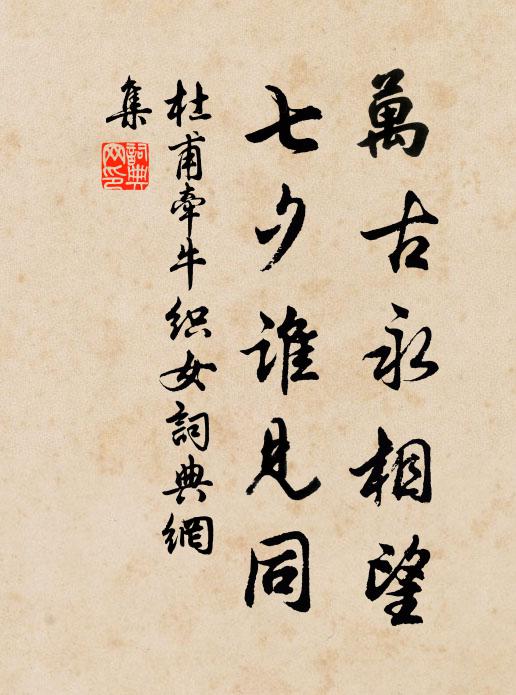 萬古永相望
七夕誰見同
杜甫牽牛织女詞典網
集
詞典網印